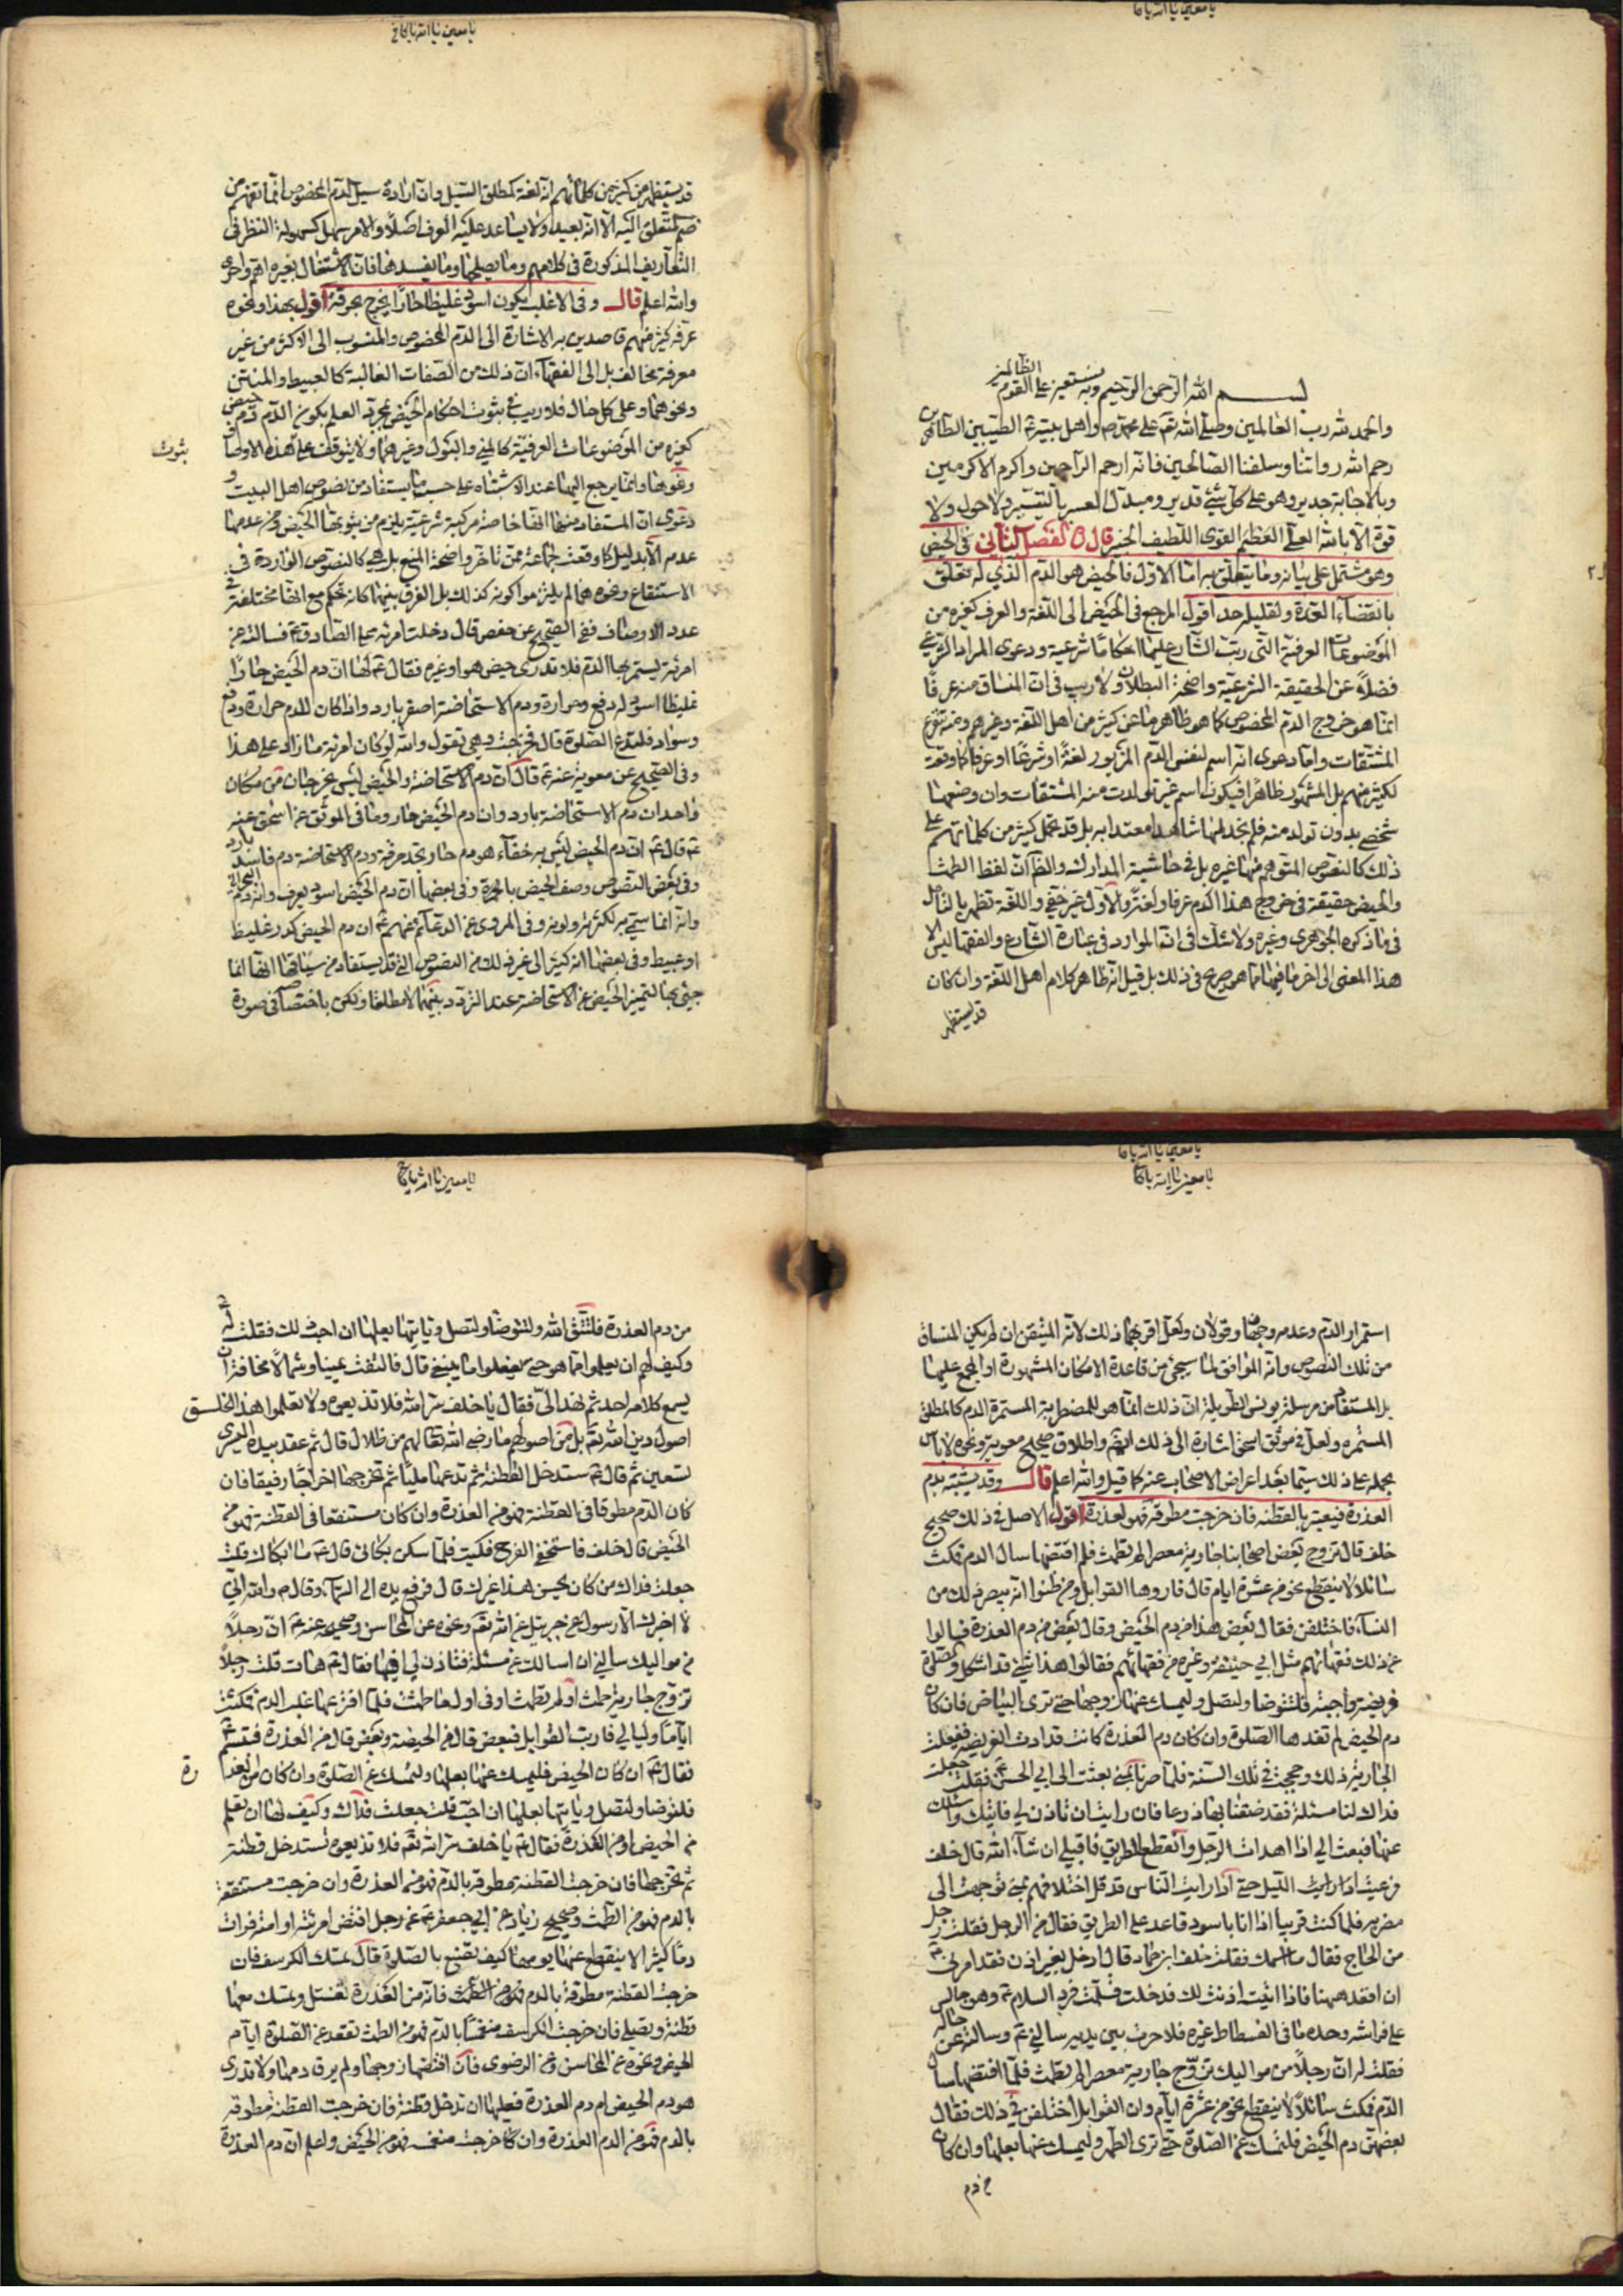 يا معين يا الله يا كا
بســـم الله الرحمن الرحيم وبه نستعين على القوم الظالمين
والحمد لله رب العالمين وصلى الله تعم على محمد ص واهل بيته الطيبين الطاهرين
رحم الله رواتنا وسلفنا الصالحين فانه ارحم الراحمين واكرم الاكرمين
وبالاجابة جدير وهو على كل شئ قدير ومبدل العسر بالتيسير ولا حول ولا
قوة الا بالله العلى العظيم القوى اللطيف الخبير قال الفصل الثانى فى الحيض
وهو مشتمل على بيانه وما يتعلق به اما الاول فالحيض هو الدم الذى له تعلق
بانقضاء العدة ولقليله حد اقول المرجع فى الحيض الى اللغة والعرف كغيره من
الموضوعات العرفية التى رتب الشارع عليها احكاما شرعية ودعوى المراد الشرعى
فضلا عن الحقيقة الشرعية واضحة البطلان ولا ريب فى ان المنساق منه عرفا
انما هو خروج الدم المخصوص كما هو ظاهر ما عن كثير من اهل اللغة وغيرهم ومنه تتفرع
المشتقات واما دعوى انه اسم لنفس الدم المزبور لغة او شرعا او عرفا كما وقعت
لكثير منهم بل المشهور ظاهرا فيكون اسم غير تولدت منه المشتقات وان وضعها
شخصى بدون تولد منه فلم نجد لها شاهدا معتدا به بل قد يحمل كثير من كلماتهم على
ذلك كالنصوص المتوهم منها غيره بل فى حاشية المدارك والظ ان لفظ الطمث
والحيض حقيقة فى خروج هذا الدم عرفا ولغة والاول غير خفى واللغة تظهر بالتأمل
فى ما ذكره الجوهرى وغيره ولا شك فى ان الوارد فى عبارة الشارع والفقها ليس الا
هذا المعنى الى اخر ما فيها مما هو صريح فى ذلك بل قيل انه ظاهر كلام اهل اللغة وان كان
قد يستظهر
يا معين يا الله يا كافى
قد يستظهر من كثير من كلماتهم انه لغة لمطلق السيل وان ارادة سيل الدم المخصوص انما تفهم من
ضم المتعلق اليه الا انه بعيد ولا يساعد عليه العرف اصلا والامر سهل كسهولة النظر فى
التعاريف المذكورة فى كلامهم وما يصلحها وما يفسدها فان الاشتغال بغيره اهم واحرى
والله اعلم قال وفى الاغلب يكون اسود غليظا حارا يخرج بحرقة اقول بهذا ونحوه
عرفه كثير منهم قاصدين به الاشارة الى الدم المخصوص والمنسوب الى الاكثر من غير
معرفة مخالف بل الى الفقهاء ان ذلك من الصفات الغالبة كالعبيط والمنتن
ونحوهما وعلى كل حال فلا ريب فى ثبوت احكام الحيض بمجرد العلم بكون الدم دم حيض
كغيره من الموضوعات العرفية كالمنى والبول وغيرهما ولا يتوقف على هذه الاوصاف
ثبوت
ونحوها وانما يرجع اليها عند الاشتباه على حسب ما يستفاد من نصوص اهل البيت و
دعوى ان المستفاد منها انها خاصة مركبة شرعية يلزم من ثبوتها الحيض ومن عدمها
عدم الا بدليل كما وقعت لجماعة ممن تاخر واضحة المنع بل هى كالنصوص الواردة فى
الاستنقاع ونحوه مما لم يلتزموا كونه كذلك بل الفرق بينهما كانه تحكم مع انها مختلفة فى
عدد الاوصاف ففى الصحيح عن حفص قال دخلت امرئة على الصادق ع فسالته عن
امرئة يستمر بها الدم فلا تدرى حيض هو او غيره فقال ع لها ان دم الحيض حار
غليظ اسود له دفع وحرارة ودم الاستحاضة اصفر بارد واذا كان للدم حرارة ودفع
وسواد فلتدع الصلوة قال فخرجت وهى تقول والله لو كان امرئة ما زاد على هذا
وفى الصحيح عن معوية عنه ع قال ان دم الاستحاضة والحيض ليس يخرجان من مكان
واحد ان دم الاستحاضة بارد وان دم الحيض حار وما فى الموثق عن اسحق عنه
ع قال ع ان دم الحيض ليس به خفاء هو دم حار تجد حرقة ودم الاستحاضة دم فاسد بارد
وفى بعض النصوص وصف الحيض بالحمرة وفى بعضها ان دم الحيض اسود يعرف وانه دم البحرانى
وانه انما سمى به لكثرته ولونه وفى المروى عن الدعائم عنهم ع ان دم الحيض كدر غليظ
او عبيط وفى بعضها انه كثير الى غير ذلك من النصوص التى قد يستفاد من سياقها انها انما
جئ بها لتميز الحيض عن الاستحاضة عند التردد بينهما لا مطلقا ولكن باختصاص فى صورة
يا معين يا الله يا كا
يا معين يا الله يا كا
استمرار الدم وعدمه وجهان وقولان ولعل اقربهما ذلك لانه المتيقن ان لم يكن المنساق
من تلك النصوص وانه الموافق لما سيجئ من قاعدة الامكان المشهورة او المجمع عليها
بل المستفاد من مرسلة يونس الطويلة ان ذلك انما هو للمضطربة المستمرة الدم كالمطلق
المستمرة ولعل فى موثق اسحق اشارة الى ذلك ايضم واطلاق صحيح معوية ونحوه لا باس
بحمله على ذلك سيما بعد اعراض الاصحاب عنه كما قيل والله اعلم قال وقد يشتبه بدم
العذرة فيعتبر بالقطنة فان خرجت مطوقة فهو لعذرة اقول الاصل فى ذلك صحيح
خلف قال تزوج بعض اصحابنا جارية معصرا لم تطمث فلما افتضها سال الدم فمكث
سائلا لا ينقطع نحو من عشرة ايام قال فاروها القوابل ومن ظنوا انه يبصر ذلك من
النساء فاختلفن فقال بعض هذا من دم الحيض وقال بعض من دم العذرة فسالوا
عن ذلك فقهائهم مثل ابى حنيفة وغيره من فقهائهم فقالوا هذا شئ قد اشكل والصلوة
فريضة واجبة فلتتوضا ولتصل وليمسك عنها زوجها حتى ترى البياض فان كان
دم الحيض لم تضرها الصلوة وان كان دم العذرة كانت قد ادت الفريضة ففعلت
الجارية ذلك وحججت فى تلك السنة فلما صرنا بمنى بعثت الى ابى الحسن ع فقلت جعلت
فداك لنا مسئلة فقد ضقنا بها ذرعا فان رايت ان تاذن لى فاتيك واسئلك
عنها فبعث الى اذا هدات الرجل وانقطع الطريق فاقبل ان شاء الله قال خلف
فرعيت الليل حتى اذا رايت الناس قد قل اختلافهم بمنى توجهت الى
مضربه فلما كنت قريبا اذا انا باسود قاعد على الطريق فقال من الرجل فقلت رجل
من الحاج فقال ما اسمك فقلت خلف ابن حماد قال ادخل بغير اذن فقد امرنى
ان اقعد ههنا فاذا اتيت اذنت لك فدخلت فسلمت فرد السلام ع وهو جالس
على فراشه وحده ما فى الفسطاط غيره فلما صرت بين يديه سالنى ع وسالته عن حاله
فقلت له ان رجلا من مواليك تزوج جارية معصرا لم تطمث فلما افتضها سال
الدم فمكث سائلا لا ينقطع نحو من عشرة ايام وان القوابل اختلفن فى ذلك فقال
بعضهن دم الحيض فلتمسك عن الصلوة حتى ترى الطهر وليمسك عنها بعلها وان كان
من دم
يا معين يا الله يا كا
من دم العذرة فلتتق الله ولتتوضا ولتصل وياتيها بعلها ان احب ذلك فقلت له
وكيف لهم ان يعلموا مما هو حتى يفعلوا ما ينبغى قال فالتفت يمينا وشمالا مخافة ان
يسمع كلامه احد ثم نهد الى فقال يا خلف سر الله فلا تذيعوه ولا تعلموا هذا الخلق
اصول دين الله تعم بل ارضوا لهم ما رضى الله تعالى لهم من ظلال قال ثم عقد بيده اليسرى
تسعين ثم قال ع ستدخل القطنة ثم تدعها مليا ثم تخرجها اخراجا رفيقا فان
كان الدم مطوقا فى القطنة فهو من العذرة وان كان مستنقعا فى القطنة فهو من
الحيض قال خلف فاستخفنى الفرح فبكيت فلما سكن بكائى قال ع ما ابكاك قلت
جعلت فداك من كان يحسن هذا غيرك قال فرفع يده الى السماء وقال ع والله انى
لا اخبرك الا رسول عن جبرئيل عن الله تعم ونحوه عن المحاسن وصحيحه عنه ع ان رجلا
من مواليك سالنى ان اسالك عن مسئلة فتاذن لى فيها فقال ع هات قلت رجل
تزوج جارية طمثت او لم تطمث او فى اول ما طمثت فلما افترعها غلب الدم فمكث
اياما وليالى فاريت القوابل فبعض قال من الحيضة وبعض قال من العذرة فتبسم ع
فقال ع ان كان الحيض فليمسك عنها بعلها ولتمسك عن الصلوة وان كان من العذ
رة
فلتوضا ولتصل وياتيها بعلها ان احب قلت جعلت فداك وكيف لها ان تعلم
من الحيض او من العذرة فقال ع يا خلف سر الله تعم فلا تذيعوه تستدخل قطنة
ثم تخرجها فان خرجت القطنة مطوقة بالدم فهو من العذرة وان خرجت مستنقعة
بالدم فهو من الطمث وصحيح زياد عن ابى جعفر ع عن رجل افتض امرئته او امته فرات
دما كثيرا لا ينقطع عنها يومها كيف تصنع بالصلوة قال تمسك الكرسف فان
خرجت القطنة مطوقة بالدم فانه من العذرة تغتسل وتمسك معها
قطنة وتصلى فان خرجت الكرسف منغمسا بالدم فهو من الطمث تقعد عن الصلوة ايام
الحيض ونحوه عن المحاسن وعن الرضوى فان افتضها زوجها ولم يرق دمها ولا تدرى
هو دم الحيض ام دم العذرة فعليها ان تدخل قطنة فان خرجت القطنة مطوقة
بالدم فهو من الدم العذرة وان خرجت منغمسه فهو من الحيض واعلم ان دم العذرة